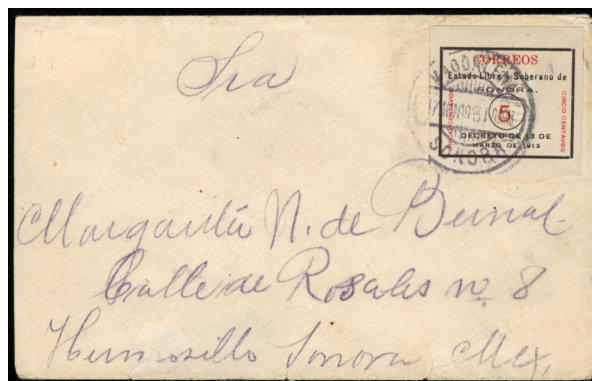 Sra
CORREOS
Estado Libre y Soberano de
SONORA.
5
CINCO CENTAVOS
DECRETO DE 13 DE
MARZO DE 1913
MAGDALENA
SONORA
Margarita N. de Bernal
Calle de Rosales no. 8
Hermosillo Sonora Mex,